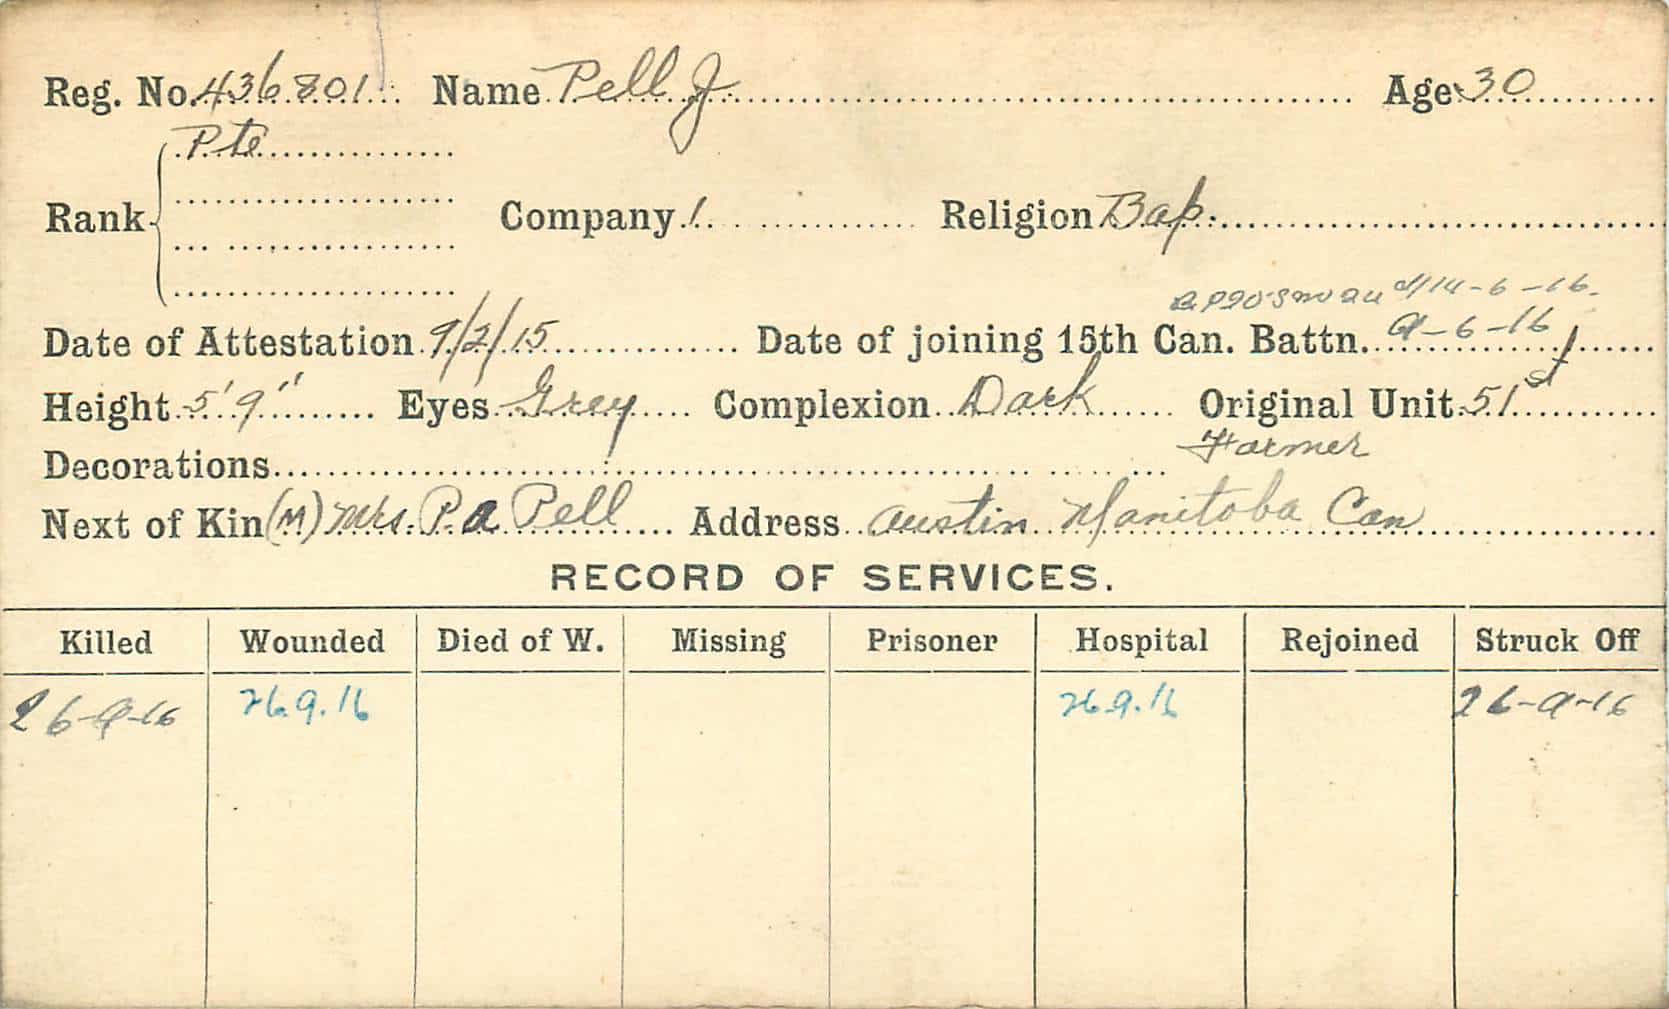 Reg. No. 436801 Name Pell J Age 30
Pte
Rank Company 1 Religion Bap.
14-6-16.
Date of Attestation 9/2/15 Date of joining 15th Can. Battn. 9-6-16
Height 5'9" Eyes Grey Complexion Dark Original Unit 51st
Decorations Farmer
Next of Kin (M) Mrs. P.A Pell Address Austin Manitoba Can
RECORD OF SERVICES.
Killed Wounded Died of W. Missing Prisoner Hospital Rejoined Struck Off
26-9-16 26.9.16 26.9.16 26-9-16